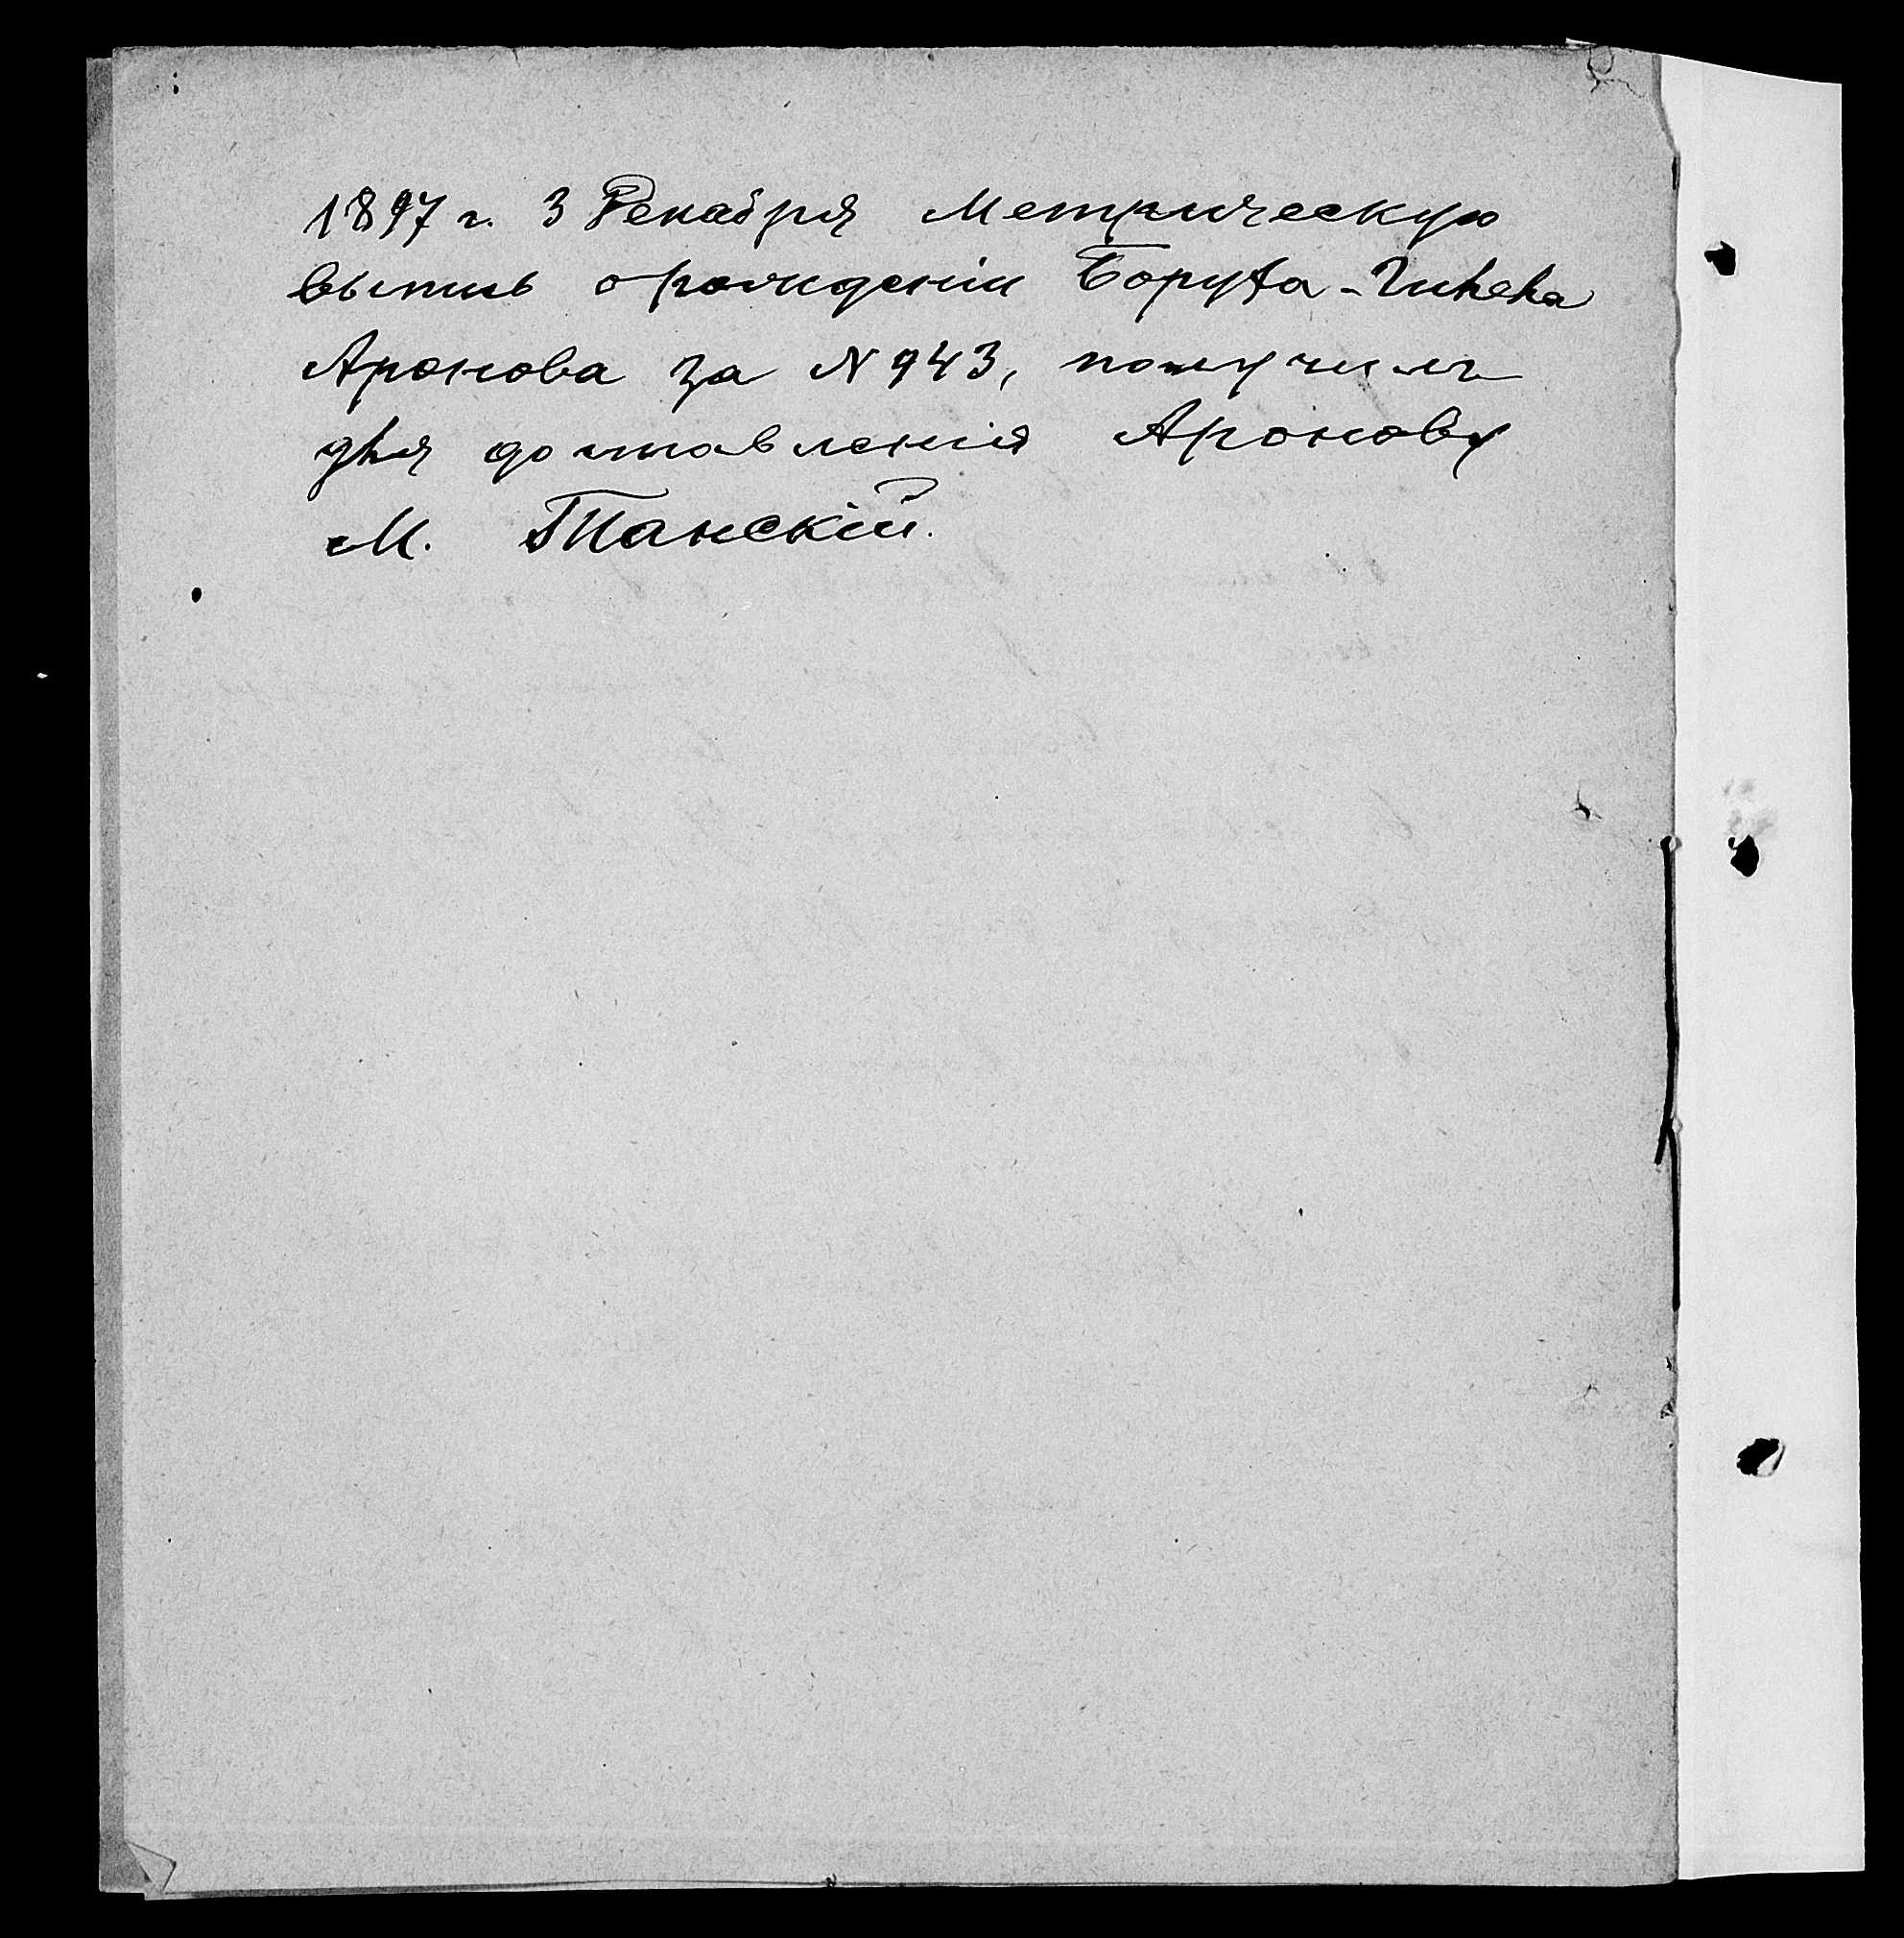 1897 г. 3 Декабря Метрическую
выпись о рожденіи Боруха-Гилела
Аронова за N 943, получилъ
для доставленія Аронову
М. Танскій.